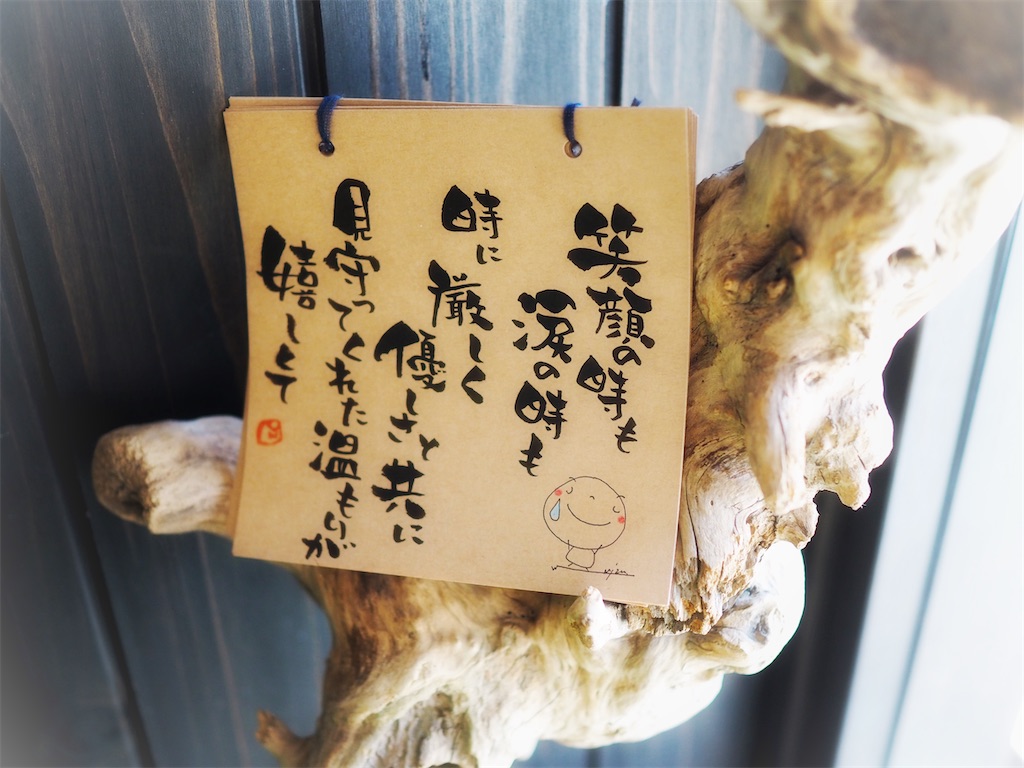 笑顔の時も
涙の時も
時に
厳しく
優しさと共に
見守ってくれた温もりが
嬉しくて